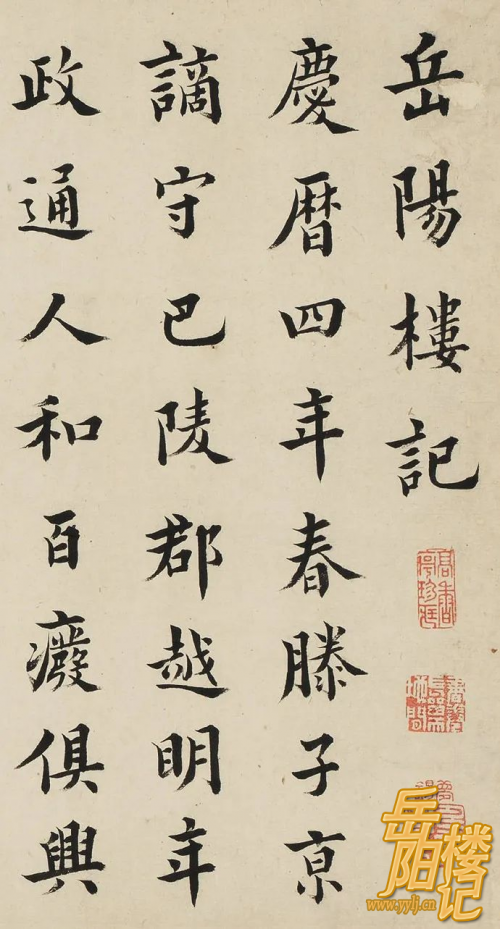 岳陽樓記
慶曆四年春滕子京
謫守巴陵郡越明年
政通人和百癈俱興
岳阳楼记
www.yylj.cn